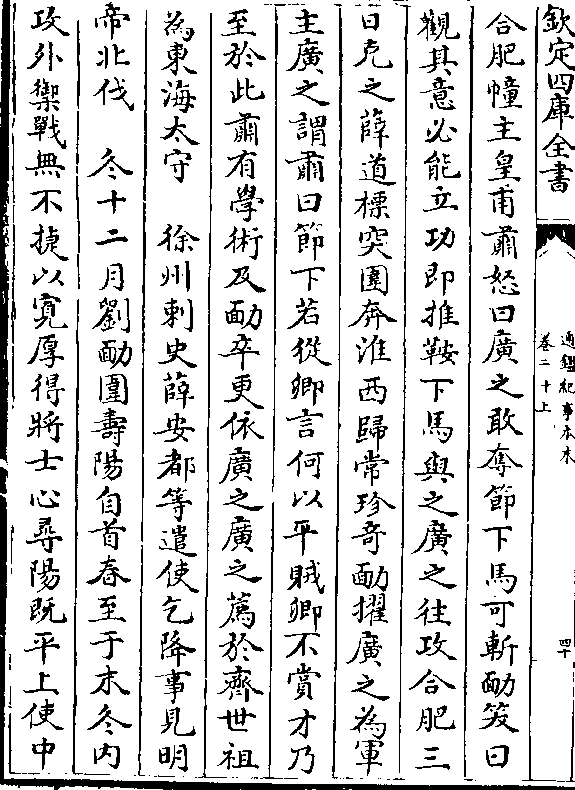 欽定四庫全書
通鑑紀事本末
卷二十上
四十
合肥幢主皇甫肅怒曰廣之敢奪節下馬可斬勔笑曰
觀其意必能立功即推鞍下馬與之廣之往攻合肥三
日克之薛道標突圍奔淮西歸常珍奇勔擢廣之為軍
主廣之謂肅曰節下若從卿言何以平賊卿不賞才乃
至於此肅有學術及勔卒更依廣之廣之薦於齊世祖
為東海太守　徐州刺史薛安都等遣使乞降事見明
帝北伐　冬十二月劉勔圍壽陽自首春至于末冬内
攻外禦戰無不捷以寛厚得將士心尋陽既平上使中